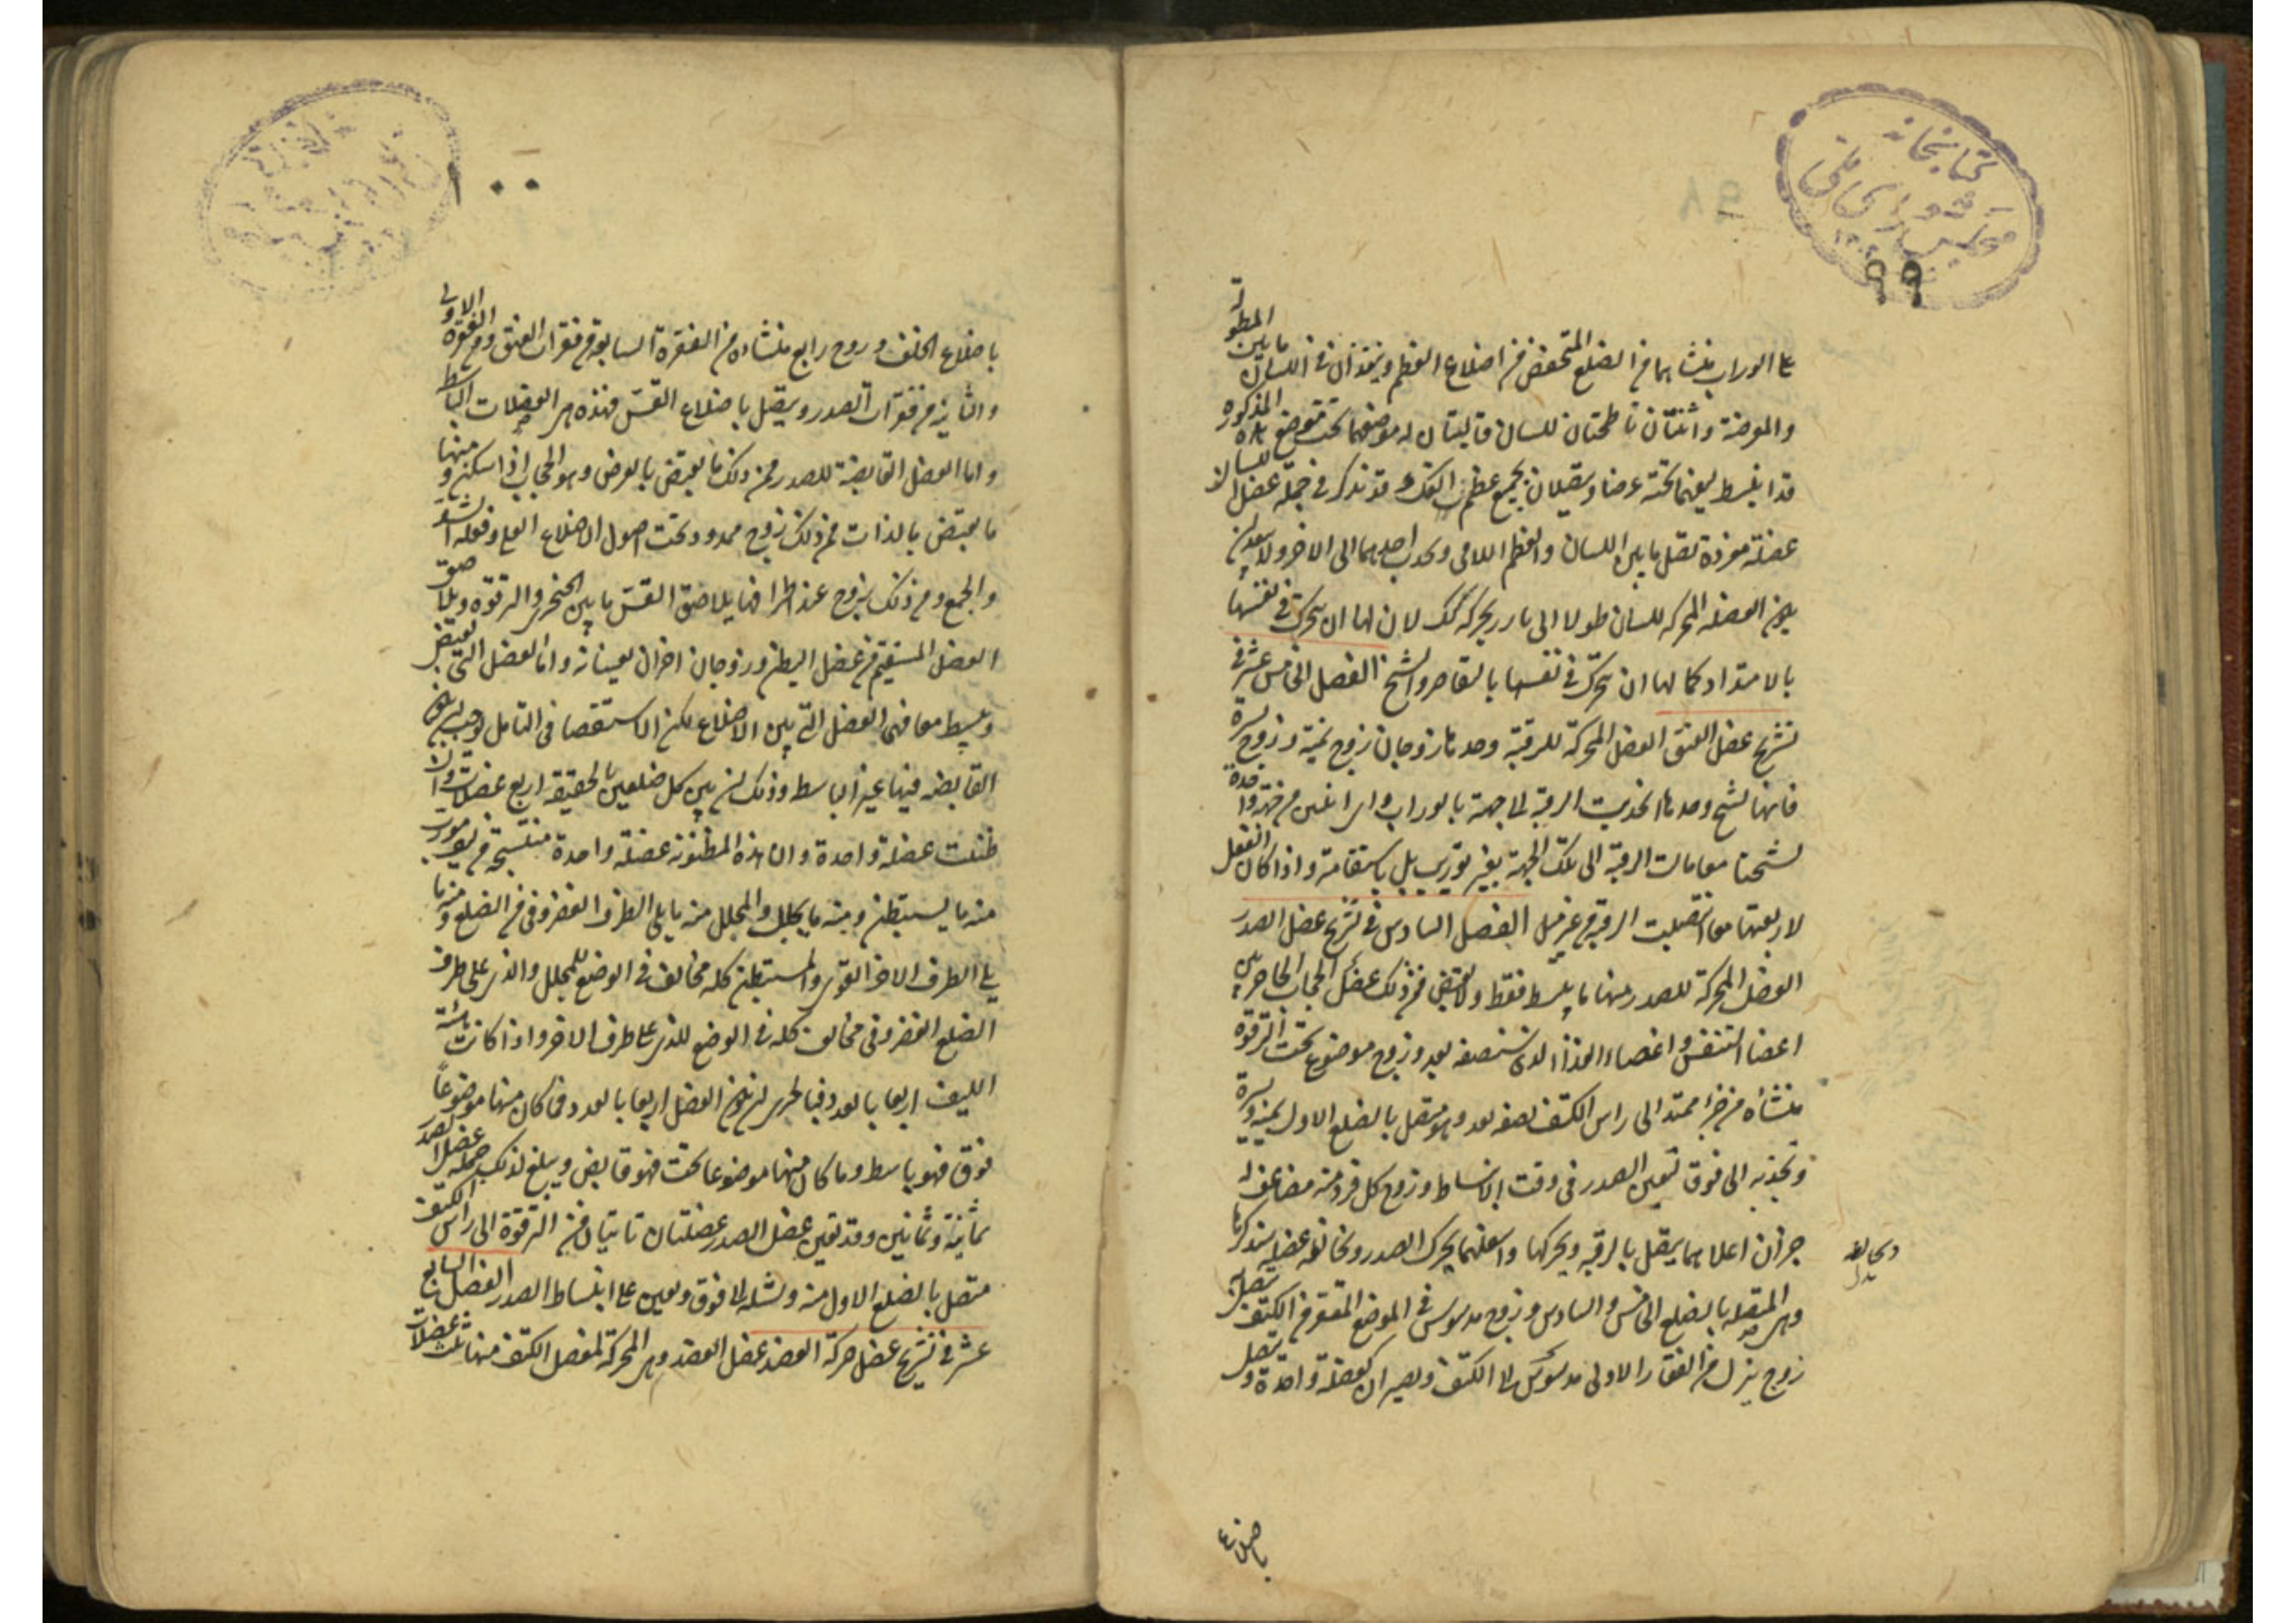 كتابخانه
مجلس شورای ملی
٩٨
٩٩
على الوراب منشاهما من الضلع المنخفض من اضلاع العظم وينفذان في اللسان ما بين المطولة
والمورضة واثنتان باطحتان للسان قالبتان له موضعهما تحت موضع هذه المذكورة
قد انبسط ليفهما تحته عرضا ويتصلان بجميع عظم الفك وقد نذكر في جملة عضل اللسان
عضلة مفردة تصل ما بين اللسان والعظم اللامي وتجذب احدهما الى الاخر ولا يبعد ان
يكون العضلة المحركة للسان طولا الى بارز يحركه كذلك لان لها ان تتحرك في نفسها
بالامتداد كما لها ان تتحرك في نفسها بالتقاصر والتشنج الفصل الخامس عشر في
تشريح عضل العنق العضل المحركة للرقبة وحدها زوجان زوج يمنة وزوج يسرة
فايهما تشنج وحدها انجذبت الرقبة الى جهته بالوراب واى اثنين من جهة واحدة
تشنجتا معا مالت الرقبة الى تلك الجهة بغير توريب بل باستقامة واذا كان الفعل
لاربعتها معا انتصبت الرقبة من غير ميل الفصل السادس في تشريح عضل الصدر
العضل المحركة للصدر منها ما يبسط فقط ولا يقبض فمن ذلك عضل الحجاب الحاجز بين
اعضاء التنفس واعضاء الغذاء الذى سنصفه بعد وزوج موضوع تحت الترقوة
منشاه من جزء ممتد الى راس الكتف نصفه بعد وهو متصل بالضلع الاول يمنة ويسرة
وتجذبه الى فوق لتعين الصدر في وقت الانبساط وزوج كل فرد منه مضاعف له
جزان اعلاهما يتصل بالرقبة ويحركها واسفلهما يحرك الصدر وتخالطه عضلة سنذكرها
وهى المتصلة بالضلع الخامس والسادس وزوج مدسوس في الموضع المقعر من الكتف يتصل به
زوج ينزل من الفقار الاولى مدسوس الى الكتف ويصيران كعضلة واحدة وتتصل
باضلاع
باضلاع الخلف وزوج رابع منشاه من الفقرة السابعة من فقرات العنق ومن الفقرة الاولى
والثانية من فقرات الصدر ويتصل باضلاع القس فهذه هى العضلات الباسطة
واما العضل القابضة للصدر فمن ذلك ما يقبض بالعرض وهو الحجاب اذا سكن ومنها
ما يقبض بالذات فمن ذلك زوج ممدود تحت اصول الاضلاع العلى وفعله الشد
والجمع ومن ذلك زوج عند اطرافها يلاصق القس ما بين الخنجرى والترقوة ويلاصق
العضل المستقيم من عضل البطن وزوجان اخران يعينانه واما العضل التى تقبض
وتبسط معا فهى العضل التى بين الاضلاع لكن الاستقصا في التامل يوجب ان يكون
القابضه فيها غير الباسط وذلك ان بين كل ضلعين بالحقيقة اربع عضلات وان
ظننت عضلة واحدة وان هذه المظنونة عضلة واحدة منتسجة من ليف مورب
منه ما يستبطن ومنه ما يجلل والمجلل منه ما يلى الطرف الغضروفى من الضلع ومنه ما
يلى الطرف الاخر القوى والمستبطن كله مخالف في الوضع للمجلل والذى على طرف
الضلع الغضروفى مخالف كله في الوضع للذى على طرف الاخر واذا كانت هيئة
الليف اربعا بالعدد فبالحرى ان يكون العضل اربعا بالعدد فما كان منها موضوعا
فوق فهو باسط وما كان منها موضوعا تحت فهو قابض ويبلغ لذلك جملة عضل الصدر
ثمانية وثمانين وقد تعين عضل الصدر عضلتان تاتيان من الترقوة الى راس الكتف
متصل بالضلع الاول منه وتشيله الى فوق وتعين على انبساط الصدر الفصل السابع
عشر في تشريح عضل حركة العضد عضل العضد وهى المحركة لمفصل الكتف منها ثلث عضلات